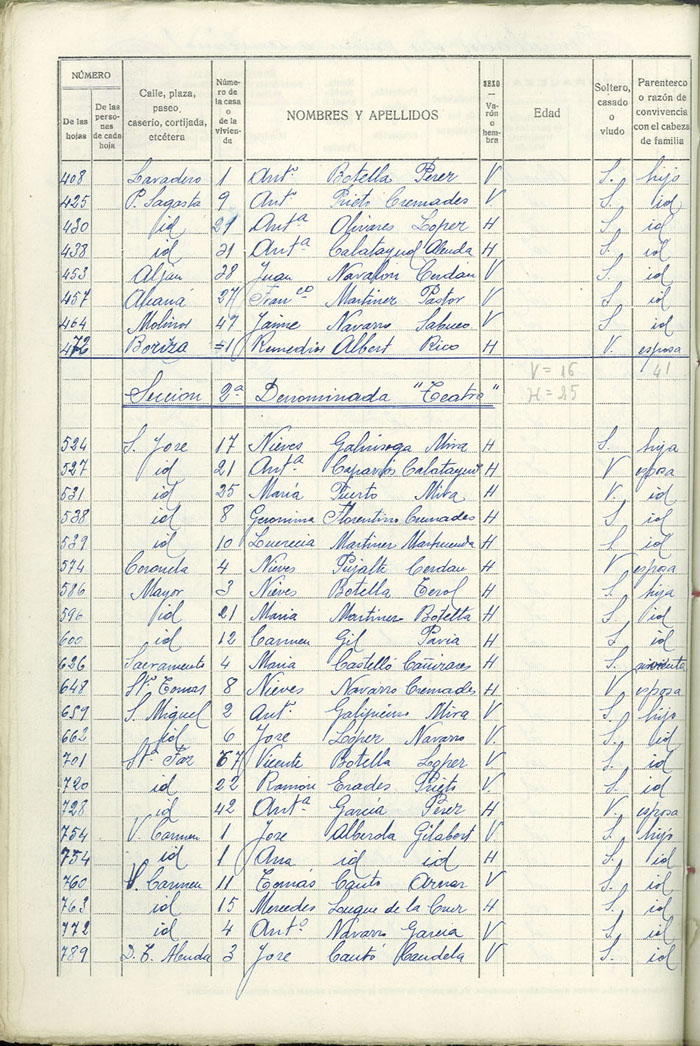 NÚMERO
De las hojas
De las personas de cada hoja
Calle, plaza, paseo, caserío, cortijada, etcétera
Número de la casa o de la vivienda
NOMBRES Y APELLIDOS
SEXO — Varón o hembra
Edad
Soltero, casado o viudo
Parentesco o razón de convivencia con el cabeza de familia
408 Lavadero 1 Antº Botella Perez V S. hijo
425 P. Sagasta 9 Antº Prieto Cremades V S. id
430 id 21 Antª Olivares Lopez H S. id
438 id 31 Antª Calatayud Alenda H S. id
453 Aljau 38 Juan Navalon Cerdán V S. id
457 27 Franco Martinez Pastor V S. id
464 Molinos 47 Jaime Navarro Sabuco V S. id
472 Remedios Albert Rico H V. esposa
V = 16 41
Seccion 2ª Denominada "Teatro"
H = 25
524 S. Jose 17 Nieves Mira H S. hija
527 id 21 Antª Caparros Calatayud H V esposa
531 id 25 María Puerto Mira H V. id
538 id 8 Geronima Florentino Cremades H S. id
539 id 10 Lucrecia Martinez H S. id
574 Coronela 4 Nieves Pujalte Cerdan H V esposa
586 Mayor 3 Nieves Botella Cerol H S. hija
596 id 21 Maria Martinez Botella H S. id
600 id 12 Carmen Gil Pavia H S. id
626 Sacramento 4 Maria Castelló Cañizares H S.
648 Stº Tomas 8 Nieves Navarro Cremades H V esposa
659 S. Miguel 2 Antº Mira V S. hijo
662 id 6 Jose López Navarro V. S. id
701 67 Vicente Botella Lopez V S. id
720 id 22 Ramón Erades Prieto V. S. id
728 id 42 Antª García Perez H V. esposa
754 V. Carmen 1 Jose Alberda Gilabert V S. hijo
754 id 1 Ana id id H S. id
760 V. Carmen 11 Tomás Cantó Aznar V S. id
763 id 15 Mercedes Luque de la Cruz H S. id
772 id 4 Antº Navarro Garcia V S. id
789 D. T. Alenda 3 Jose Cantó Candela V S. id